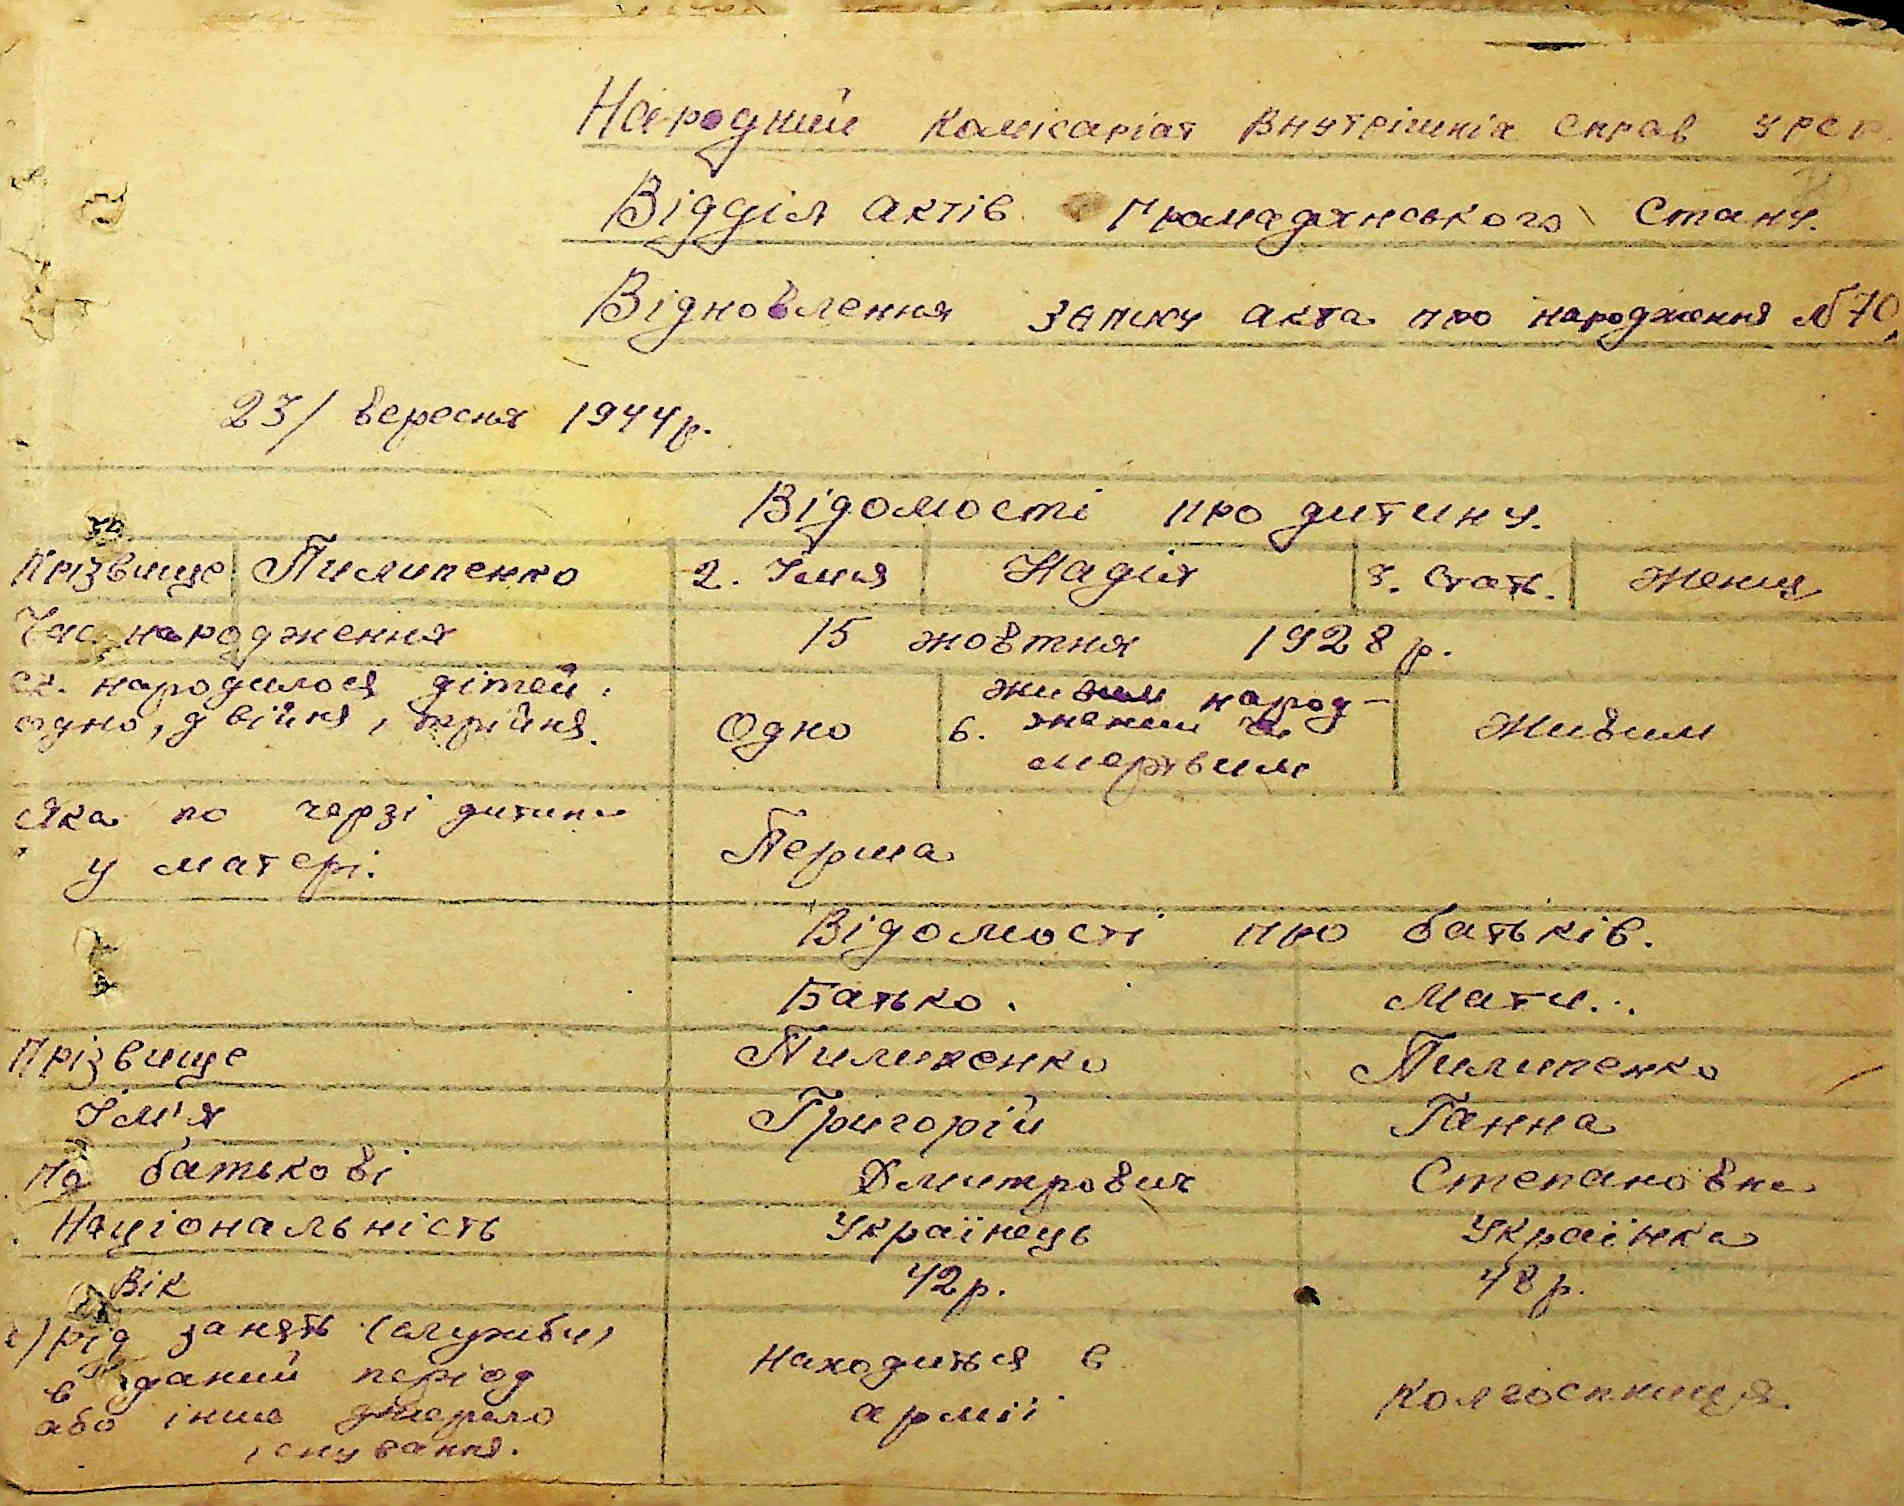 Народний Комісаріат Внутрішніх Справ УРСР
Відділ актів Громадянського Стану.
Відновлення запису акта про народження №70
23/ вересня 1944р.
Відомості про дитину.
Прізвище Пилипенко 2. Імия Надія 3. Стать. Женщ
Час народження 15 жовтня 1928 р.
ск. народилося дітей:
одно, двійня, трійня. Одно 6. живим народ-
женим чи
мертвим Живим
Яка по черзі дитина
у матері. Перша
Відомості про батьків.
Батько. Мати.
Прізвище Пилипенко Пилипенко
Ім'я Григорій Ганна
По батькові Дмитрович Степановна
Національність Українець Українка
Вік 42р. 48р.
рід занять (служби)
в даний період
або інше джерело
існування. Находиться в
армії Колгоспниця.